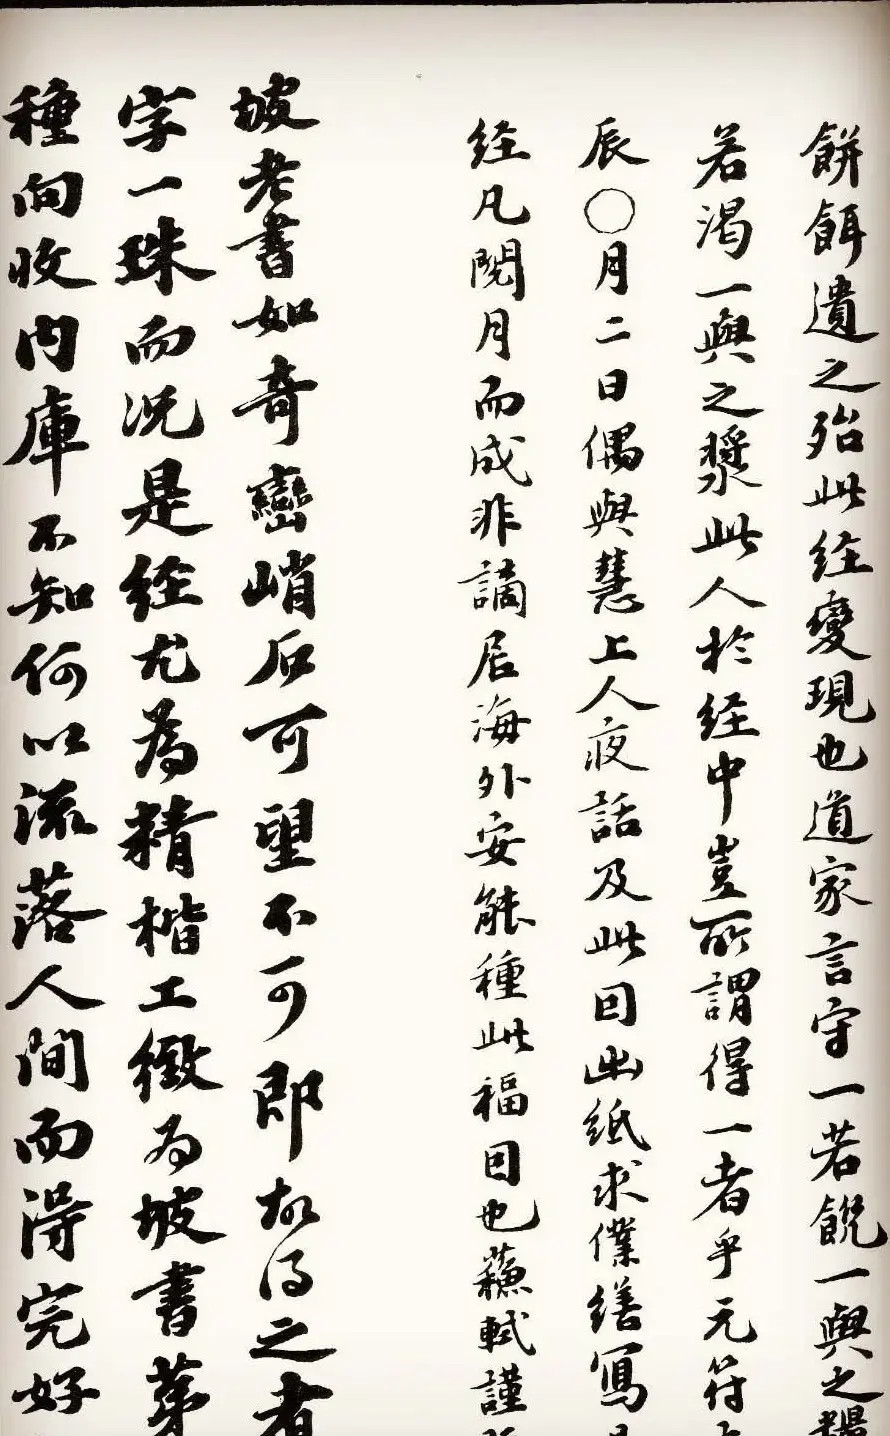 餅餌遺之殆此経變現也道家言守一若飢一與之糧
若渴一與之漿此人於経中豈所謂得一者乎元符
辰〇月二日偶與慧上人夜話及此因出紙求僕繕寫
経凡閱月而成非謫居海外安能種此福因也蘓軾謹
坡老書如奇巒峭石可望不可即故得之者
字一珠而况是経尤為精楷工緻為坡書第
種向收内庫不知何以流落人間而得完好